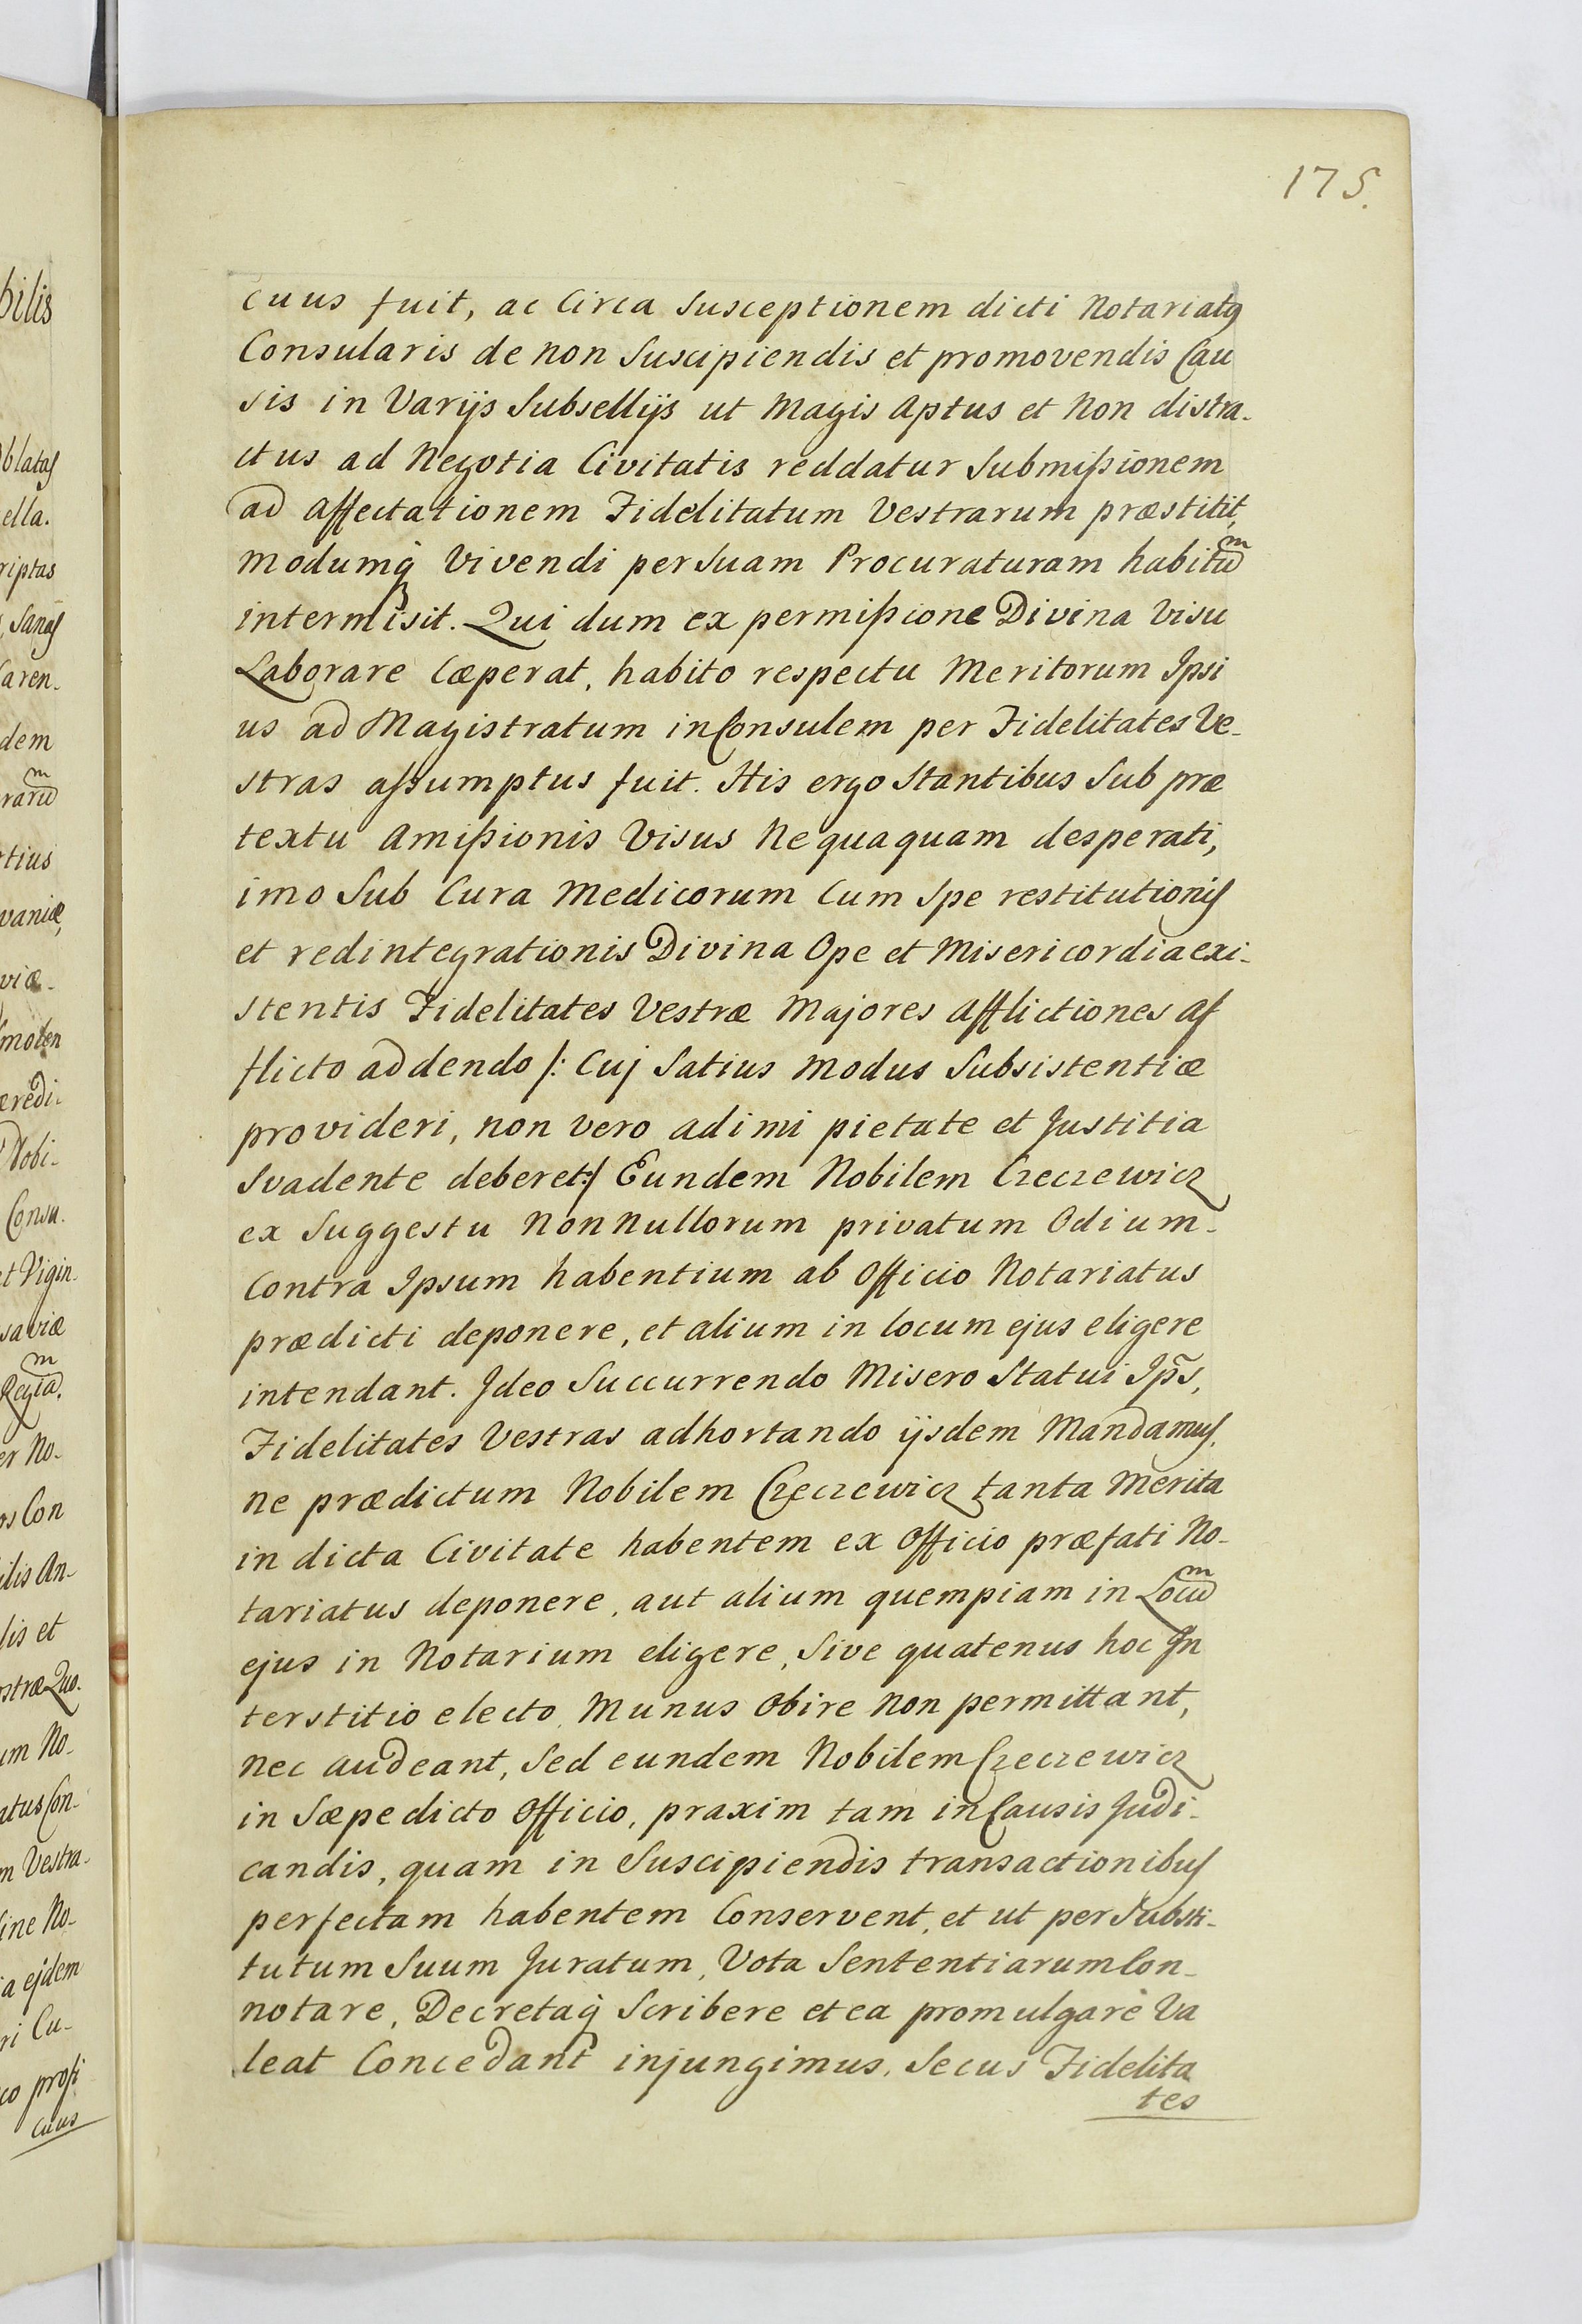 175.
cuus fuit, ac Circa Susceptionem dicti Notariatꝰ
Consularis de non Suscipiendis et promovendis Cau
sis in Varijs Subsellijs ut Magis Aptus et Non distra-
ctus ad Negotia Civitatis reddatur Submißionem
ad Affectationem Fidelitatum Vestrarum præstitit,
Modumq́ Vivendi per Suam Procuraturam habitū
intermisit. Qui dum ex permißione Divina Visu
Laborare Cæperat, habito respectu Meritorum Ipsi
us ad Magistratum in Consulem per Fidelitates Ve-
stras aßumptus fuit. His ergo Stantibus Sub præ
textu Amißionis Visus Nequaquam desperati,
imo Sub Cura Medicorum Cum Spe restitutionis
et redintegrationis Divina Ope et Misericordia exi-
stentis Fidelitates Vestræ Majores Afflictiones Af
flicto addendo /: Cuj Satius Modus Subsistentiæ
provideri, non vero adimi pietate et Justitia
Svadente deberet:/ Eundem Nobilem Czeczewicz
ex Suggestu Nonnullorum privatum Odium-
Contra Ipsum habentium ab Officio Notariatus
prædicti deponere, et alium in locum ejus eligere
intendant. Ideo Succurrendo Misero Statui Ip̄s,
Fidelitates Vestras adhortando ijsdem Mandamus,
ne prædictum Nobilem Czeczewicz tanta Merita
in dicta Civitate habentem ex Officio præfati No-
tariatus deponere, aut alium quempiam in Locū
ejus in Notarium eligere, Sive quatenus hoc In
terstitio electo Munus Obire Non permittant,
Nec audeant, Sed eundem Nobilem Czeczewicz
in Sæpedicto Officio, praxim tam in Causis Judi-
candis, quam in Suscipiendis transactionibus
perfectam habentem Conservent, et ut per Substi-
tutum Suum Juratum, Vota Sententiarum Con-
notare, Decretaq́ Scribere et ea promulgare Va
leat Concedant injungimus. Secus Fidelita
tes